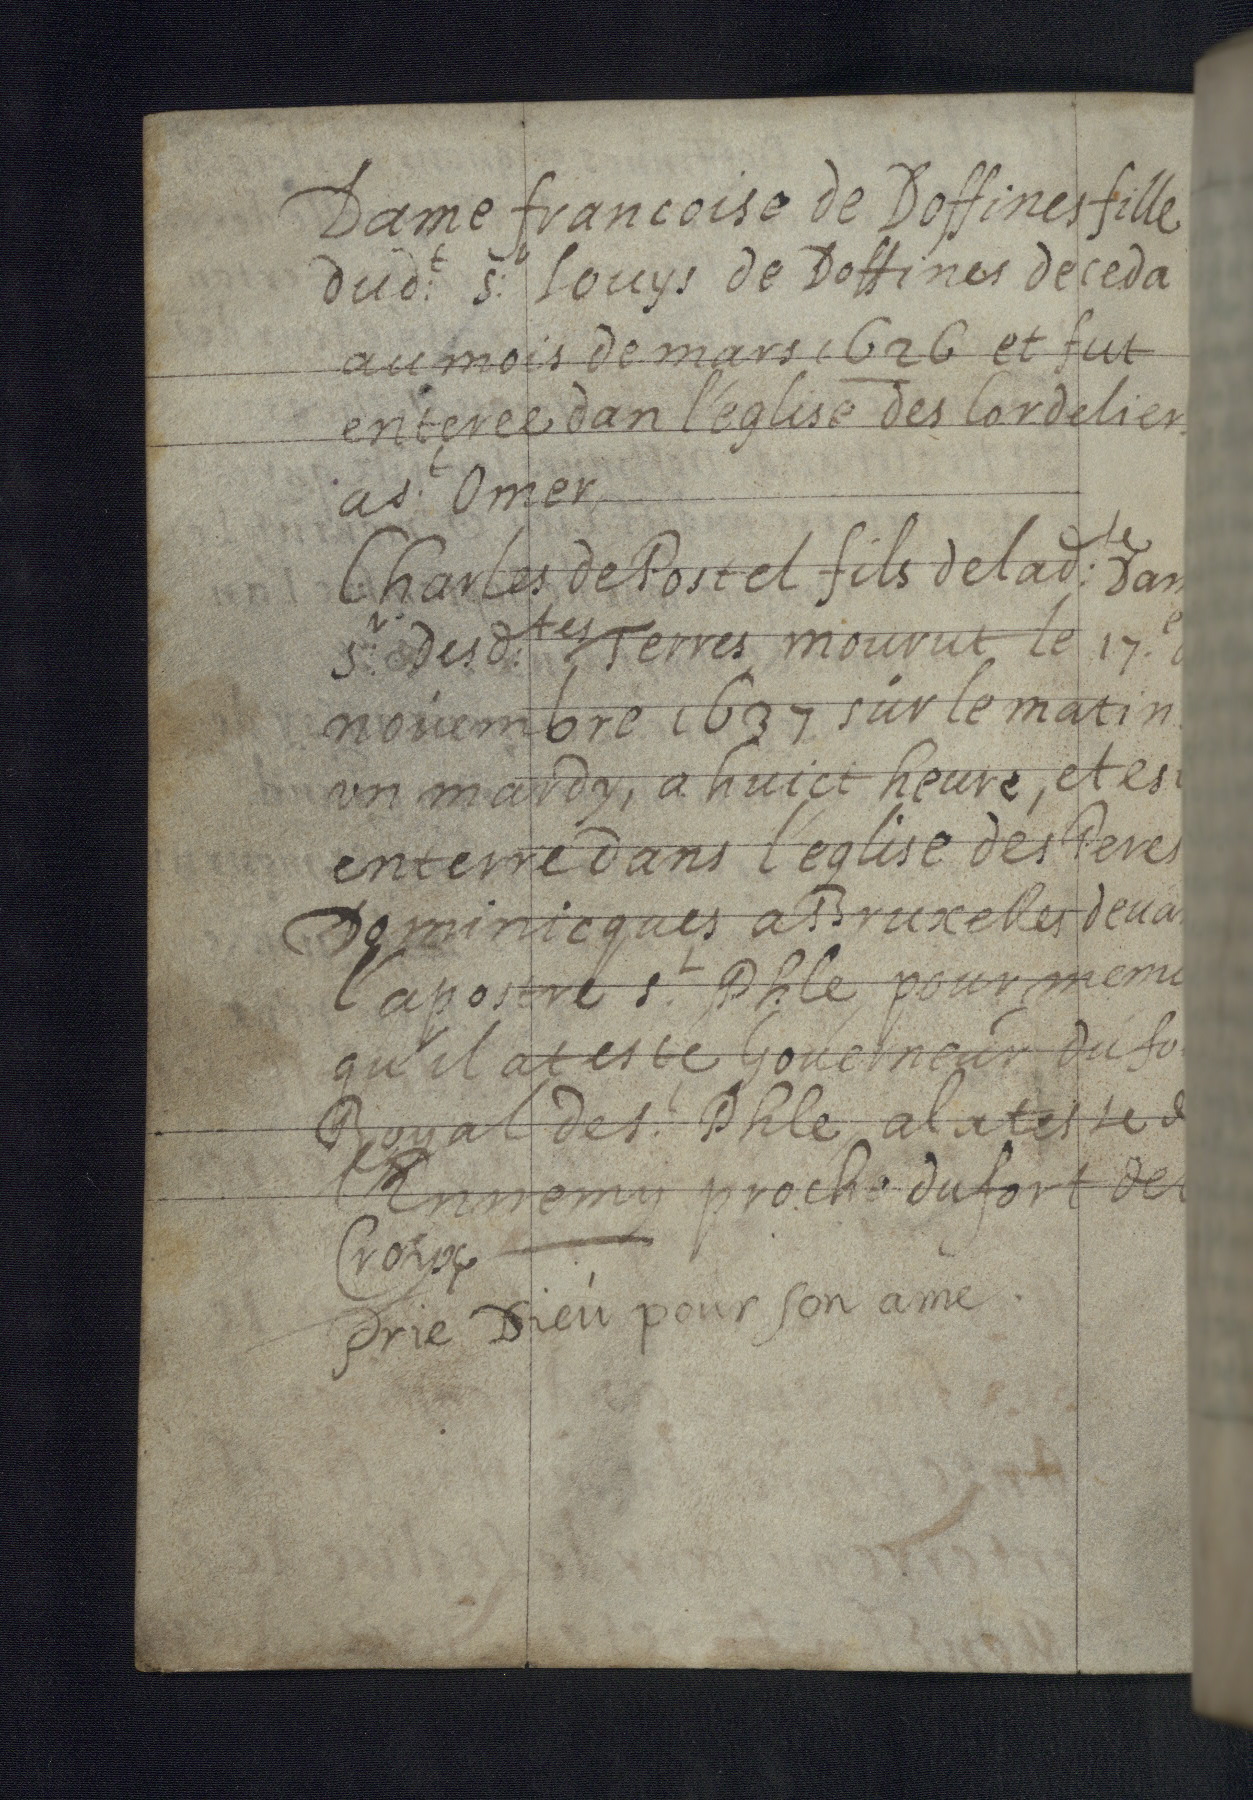 Dame francoise de Doffines fille
dud:t s:r louys de Doffines deceda
au mois de mars 1626 et fut
enteree dan l'eglise des Cordelier
a s:t Omer
Charles de Postel fils de lad:te Dam
s:r desd:tes Terres mourut le 17.e
nouembre 1637 sur le matin
vn mardy, a huict heure, et est
enterre dans l'eglise des Peres
Dominicques a Bruxelles deua
l'apostre s:t Phle pour memo
qu'il at este Gouerneur du fo
Royal de s:t Phle a la teste d
l'Ennemy proche du fort de
Croix
Prie Dieu pour son ame.